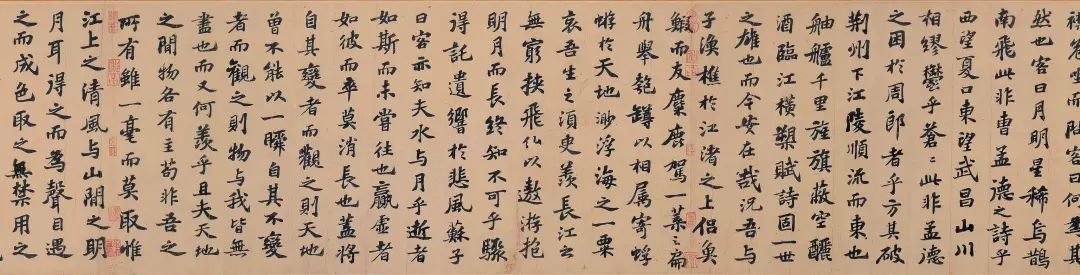 坐而問客曰何為其
然也客曰月明星稀烏鵲
南飛此非曹孟德之詩乎
西望夏口東望武昌山川
相繆鬱乎蒼〻此非孟德
之困於周郎者乎方其破
荊州下江陵順流而東也
舳艫千里旌旗蔽空釃
酒臨江橫槊賦詩固一世
之雄也而今安在哉況吾与
子漁樵於江渚之上侶魚
鰕而友麋鹿駕一葉之扁
舟舉匏罇以相属寄蜉
蝣於天地渺浮海之一粟
哀吾生之須臾羨長江之
無窮挾飛仙以遨游抱
明月而長終知不可乎驟
得託遺響於悲風蘇子
曰客亦知夫水与月乎逝者
如斯而未嘗往也贏虛者
如彼而卒莫消長也蓋將
自其變者而觀之則天地
曾不能以一瞬自其不變
者而觀之則物与我皆無
盡也而又何羨乎且夫天地
之間物各有主苟非吾之
所有雖一毫而莫取惟
江上之清風与山間之明
月耳得之而為聲目遇
之而成色取之無禁用之